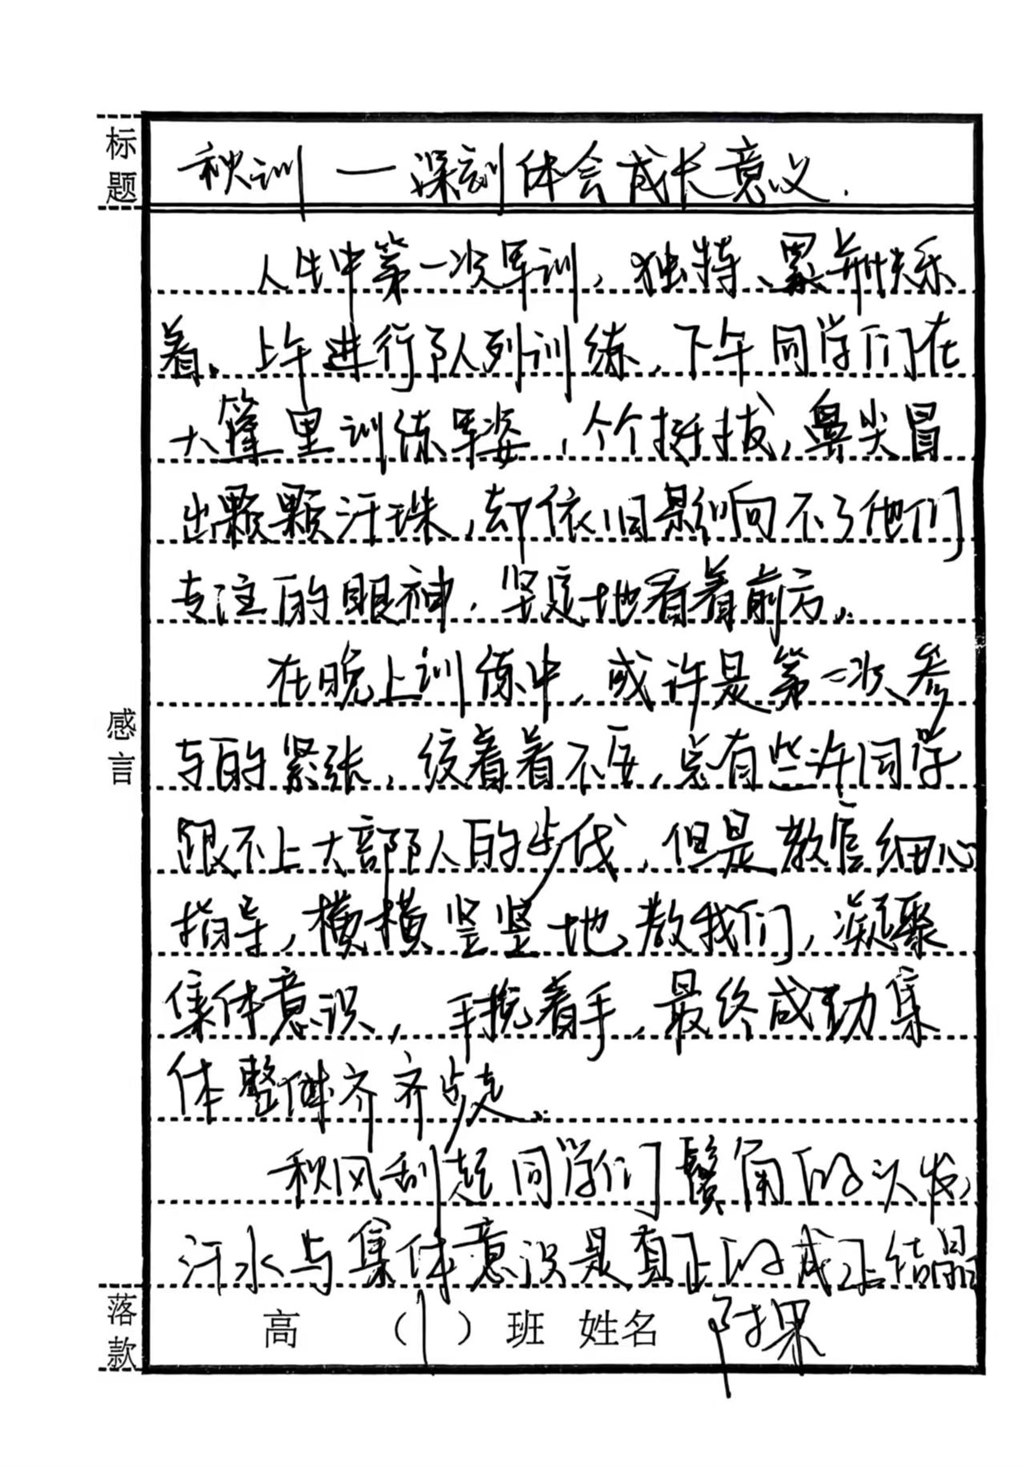 标题
秋训—深刻体会成长意义.
人生中第一次军训，独特、累并快乐
着。上午进行队列训练，下午同学们在
大篷里训练军姿，个个挺拔，鼻尖冒
出颗颗汗珠，却依旧影响不了他们
专注的眼神，坚定地看着前方。
在晚上训练中，或许是第一次参
与的紧张，绞着着不安，总有些许同学
跟不上大部队的步伐，但是教官细心
感言
指导，横横竖竖地教我们，凝聚
集体意识，手挽着手，最终成功集
体整体齐齐步走。
秋风刮起同学们鬓角的头发，
汗水与集体意识是真正的成长结晶
落款
高（1）班 姓名